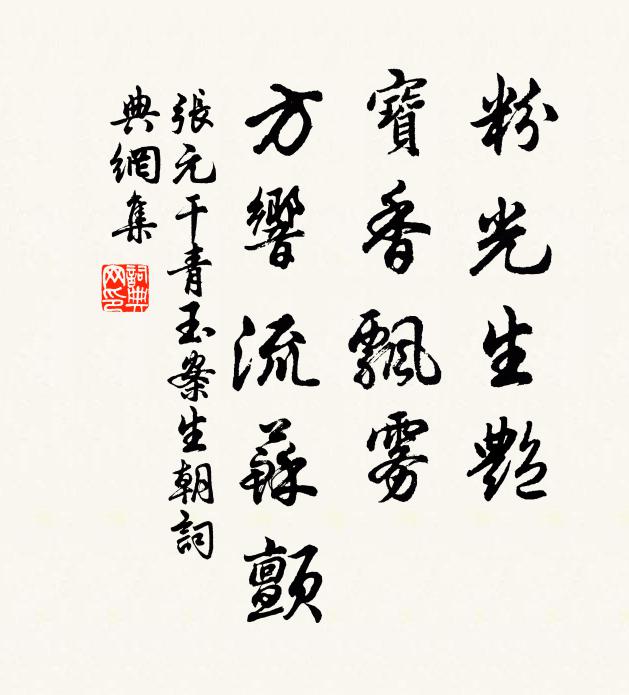 粉光生艷
寶香飄雾
方響流蘇顫
張元干青玉案生朝詞
典網集
詞典網印